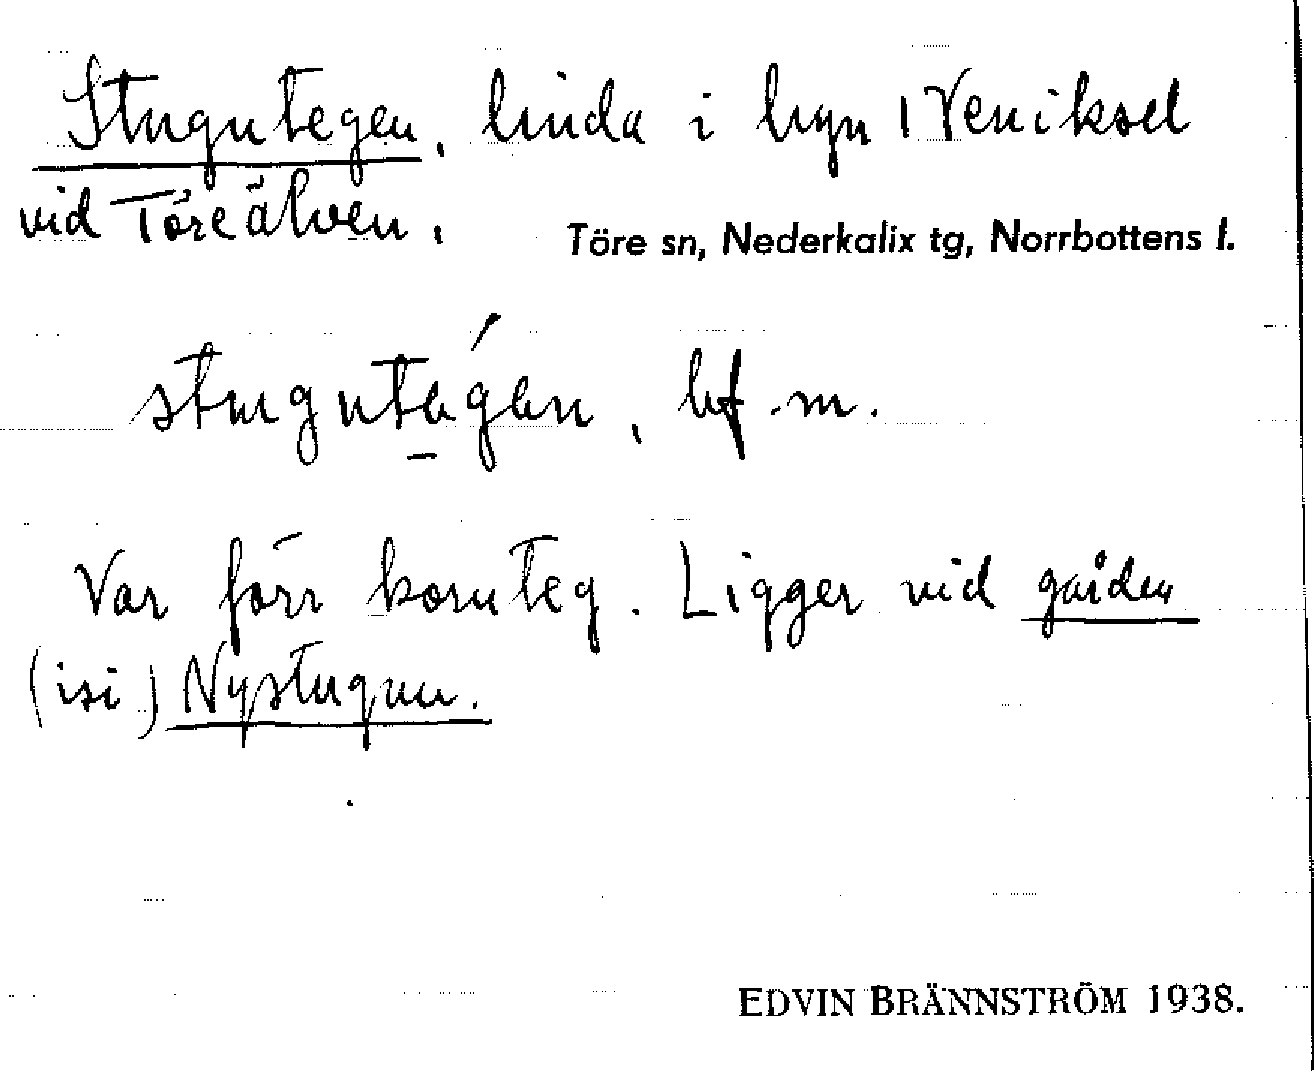 Stugutegen, linda i byn 1 Veniksel
vid Töreälven,
Töre sn, Nederkalix tg, Norrbottens l.
stugutégen, bf. m.
Var förr kornteg. Ligger vid gården
(isi) Nystugun.
EDVIN BRÄNNSTRÖM 1938.